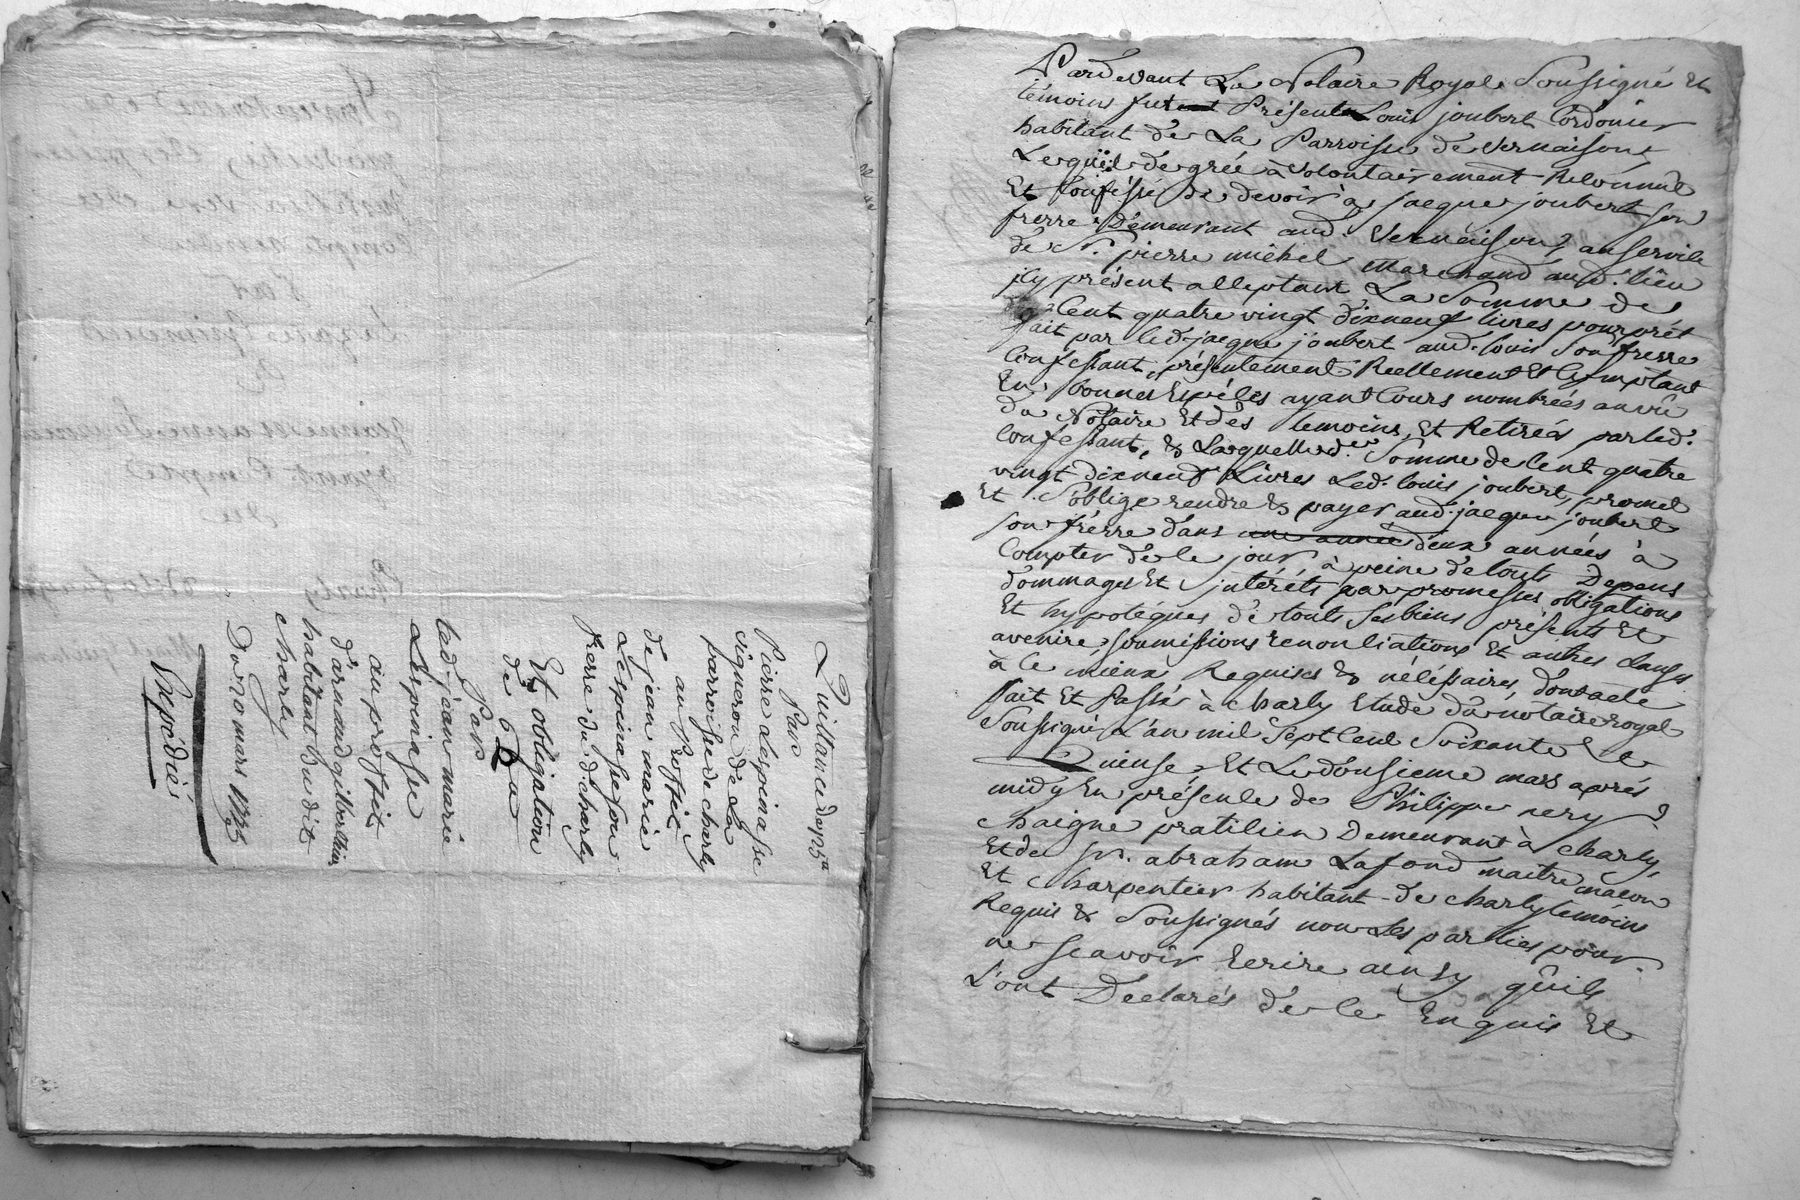 Quittance de 725ᵗᵗ
Par
Pierre Lespinasse
vigneron de La
parroisse de charly
au Proffit
de jean marie
Lespinasse son
frere du d. charly
Et obligation
de
Par
led. jean marie
Lespinasse
au proffit
d'arnaud gilberthier
habitant du dit
charly
Du 20 mars 1775
Expédiés
Pardevant Le Notaire Royal Soussigné Et
témoins fut Présent Louis joubert Cordonier
habitant de La Parroisse de Vernaison,
Lequel de gré à volontairement Reconnut
Et Confessé de devoir à jacque joubert son
frerre Demeurant aud. Vernaison, au service
de Sr. pierre michel Marchand aud. lieu
icy présent acceptant La Somme de
Cent quatre vingt dixneuf livres pour prêt
fait par led. jacque joubert aud. louis Son frerre
Confessant, présentement Reellement Et Comptant
En bonnes Espéces ayant Cours nombrées au vû
du Notaire Et des temoins, Et Retirés par led.
Confessant, & Laquelle d.e Somme de Cent quatre
vingt dixneuf Livres Led. louis joubert, promet
Et S'oblige rendre & payer aud. jacque joubert
son frérre dans une année deux années à
Compter de ce jour, à peine de touts Depens
dommages Et jnteréts par promesses obligations
Et hypotéques de touts ses biens présents Et
avenire, soumissions renonciations Et autres clauses
à ce mieux Requises & nécéssaires, dont acte
fait Et Passé à Charly Etude du notaire royal
Soussigné L'an mil Sept Cent Soixante Et
Quinse, Et Le dousieme mars aprés
midy En présence de Philippe nery
chaigne praticien Demeurant à charly,
Et de Sr. abraham Lafond maitre macon
Et Charpentier habitant de charly temoins
Requis & Soussignés non Les parties pour
ne scavoir Ecrire ainsy qu'ils
L'ont Déclarés de ce Enquis Et